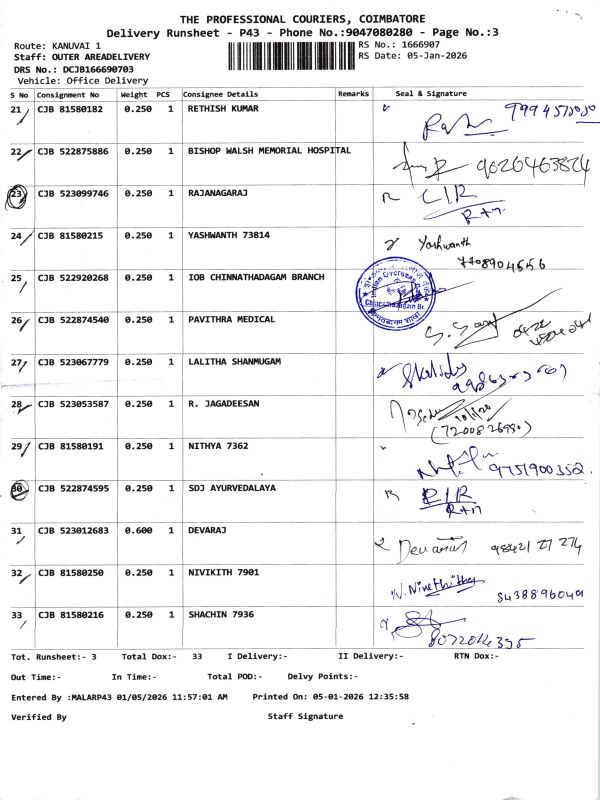 THE PROFESSIONAL COURIERS, COIMBATORE
Delivery Runsheet - P43 - Phone No.:9047080280 - Page No.:3
Route: KANUVAI 1
Staff: OUTER AREADELIVERY
DRS No.: DCJB166690703
Vehicle: Office Delivery
RS No.: 1666907
RS Date: 05-Jan-2026
S No Consignment No Weight PCS Consignee Details Remarks Seal & Signature
21 CJB 81580182 0.250 1 RETHISH KUMAR
22 CJB 522875886 0.250 1 BISHOP WALSH MEMORIAL HOSPITAL 9020463824
23 CJB 523099746 0.250 1 RAJANAGARAJ
24 CJB 81580215 0.250 1 YASHWANTH 73814 Yashwanth
7708904656
25 CJB 522920268 0.250 1 IOB CHINNATHADAGAM BRANCH
26 CJB 522874540 0.250 1 PAVITHRA MEDICAL
27 CJB 523067779 0.250 1 LALITHA SHANMUGAM
28 CJB 523053587 0.250 1 R. JAGADEESAN
29 CJB 81580191 0.250 1 NITHYA 7362 9751900352
30 CJB 522874595 0.250 1 SDJ AYURVEDALAYA
31 CJB 523012683 0.600 1 DEVARAJ
32 CJB 81580250 0.250 1 NIVIKITH 7901
8438896049
33 CJB 81580216 0.250 1 SHACHIN 7936
8072014395
Tot. Runsheet:- 3 Total Dox:- 33 I Delivery:- II Delivery:- RTN Dox:-
Out Time:- In Time:- Total POD:- Delvy Points:-
Entered By :MALARP43 01/05/2026 11:57:01 AM Printed On: 05-01-2026 12:35:58
Verified By Staff Signature